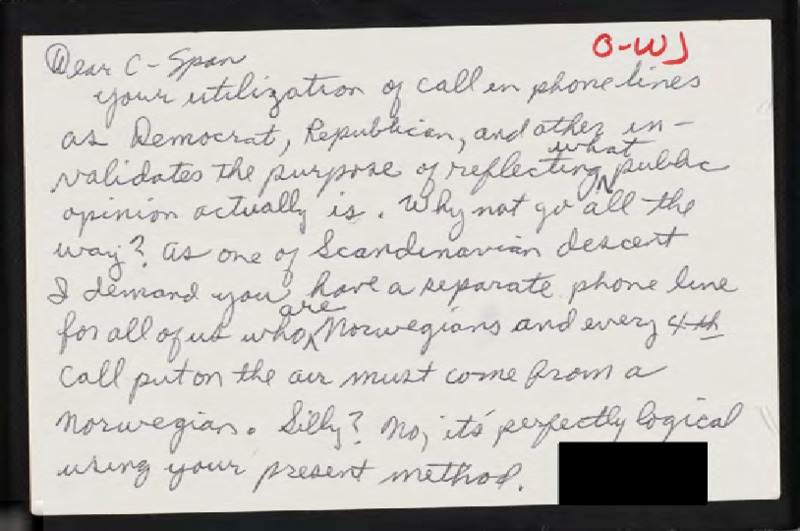 O-WJ
Dear C-Span
your utilization of call in phone lines
as Democrat, Republican, and other in-
validates the purpose of reflecting what public
opinion actually is. Why not go all the
way? As one of Scandinavian descent
I demand you have a separate phone line
for all of us who are Norwegians and every 4th
call put on the air must come from a
Norwegian. Silly? No, its' perfectly logical
using your present method.